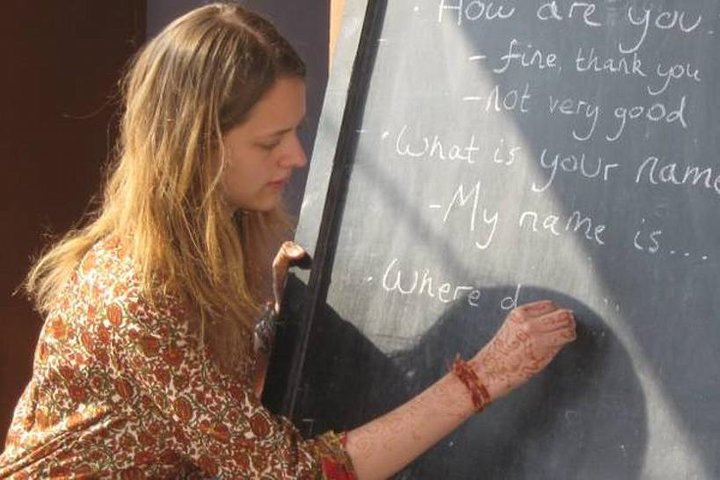 · How are you.
- fine, thank you
- not very good
· What is your name
- My name is...
· Where d